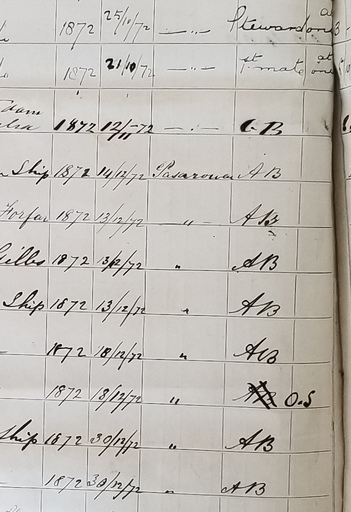 1872 25/10/72 — " — Steward at once
1872 21/10/72 — " — 1st mate at once
1872 12/11-72 — " — AB
Ship 1872 14/12/72 Pasarouan AB
Forfar 1872 13/12/72 " AB
Gibbs 1872 13/12/72 " AB
Ship 1872 13/12/72 " AB
1872 18/12/72 " AB
1872 18/12/72 " O.S
Ship 1872 30/12/72 " AB
1872 30/12/72 " AB